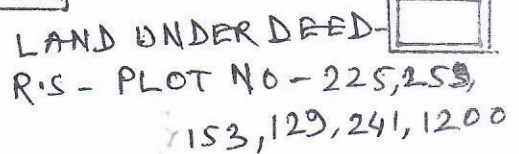 LAND UNDER DEED-
R.S - PLOT NO - 225, 259,
153, 129, 241, 1200